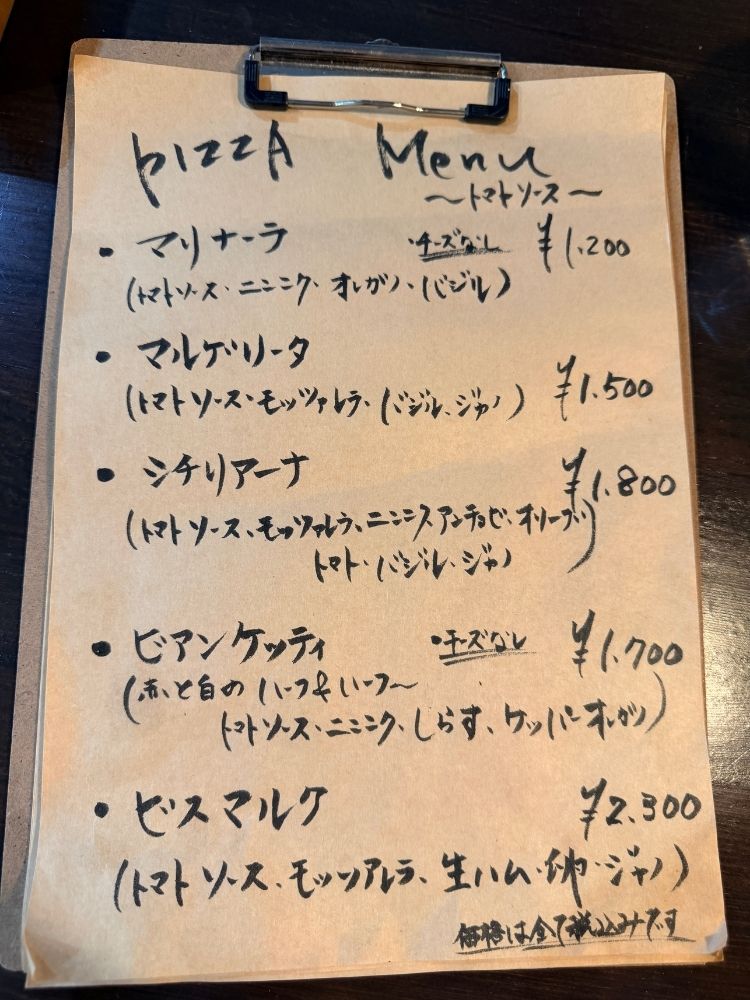 PIZZA Menu
〜トマトソース〜
・マリナーラ ・チーズなし ¥1.200
(トマトソース・ニンニク・オレガノ・バジル)
・マルゲリータ
(トマトソース・モッツァレラ、バジル、ジャノ) ¥1.500
・シチリアーナ ¥1.800
(トマトソース、モッツァレラ、ニンニク、アンチョビ、オリーブ
トマト・バジル・ジャノ)
・ビアンケッティ ・チーズなし ¥1.700
(赤と白のハーフ&ハーフ〜
トマトソース・ニンニク、しらす、ケッパーオレガノ)
・ビスマルク ¥2.300
(トマトソース、モッツアレラ、生ハム・卵・ジャノ)
価格は全て税込みです